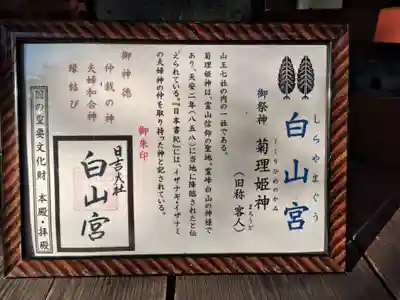 白山宮
しらやまぐう
御祭神 菊理姫神
くくりひめのかみ
（旧称 客人）
まろうど
山王七社の内の一社である。
菊理姫神は、霊山信仰の聖地、霊峰白山の神様で
あり、天安二年（八五八）に当地に降臨されたと伝
えられている。『日本書紀』には、イザナギ・イザナミ
の夫婦神の仲を取り持った神と記されている。
御神徳
仲裁の神
夫婦和合神
縁結び
御朱印
日吉大社
白山宮
国の重要文化財 本殿・拝殿